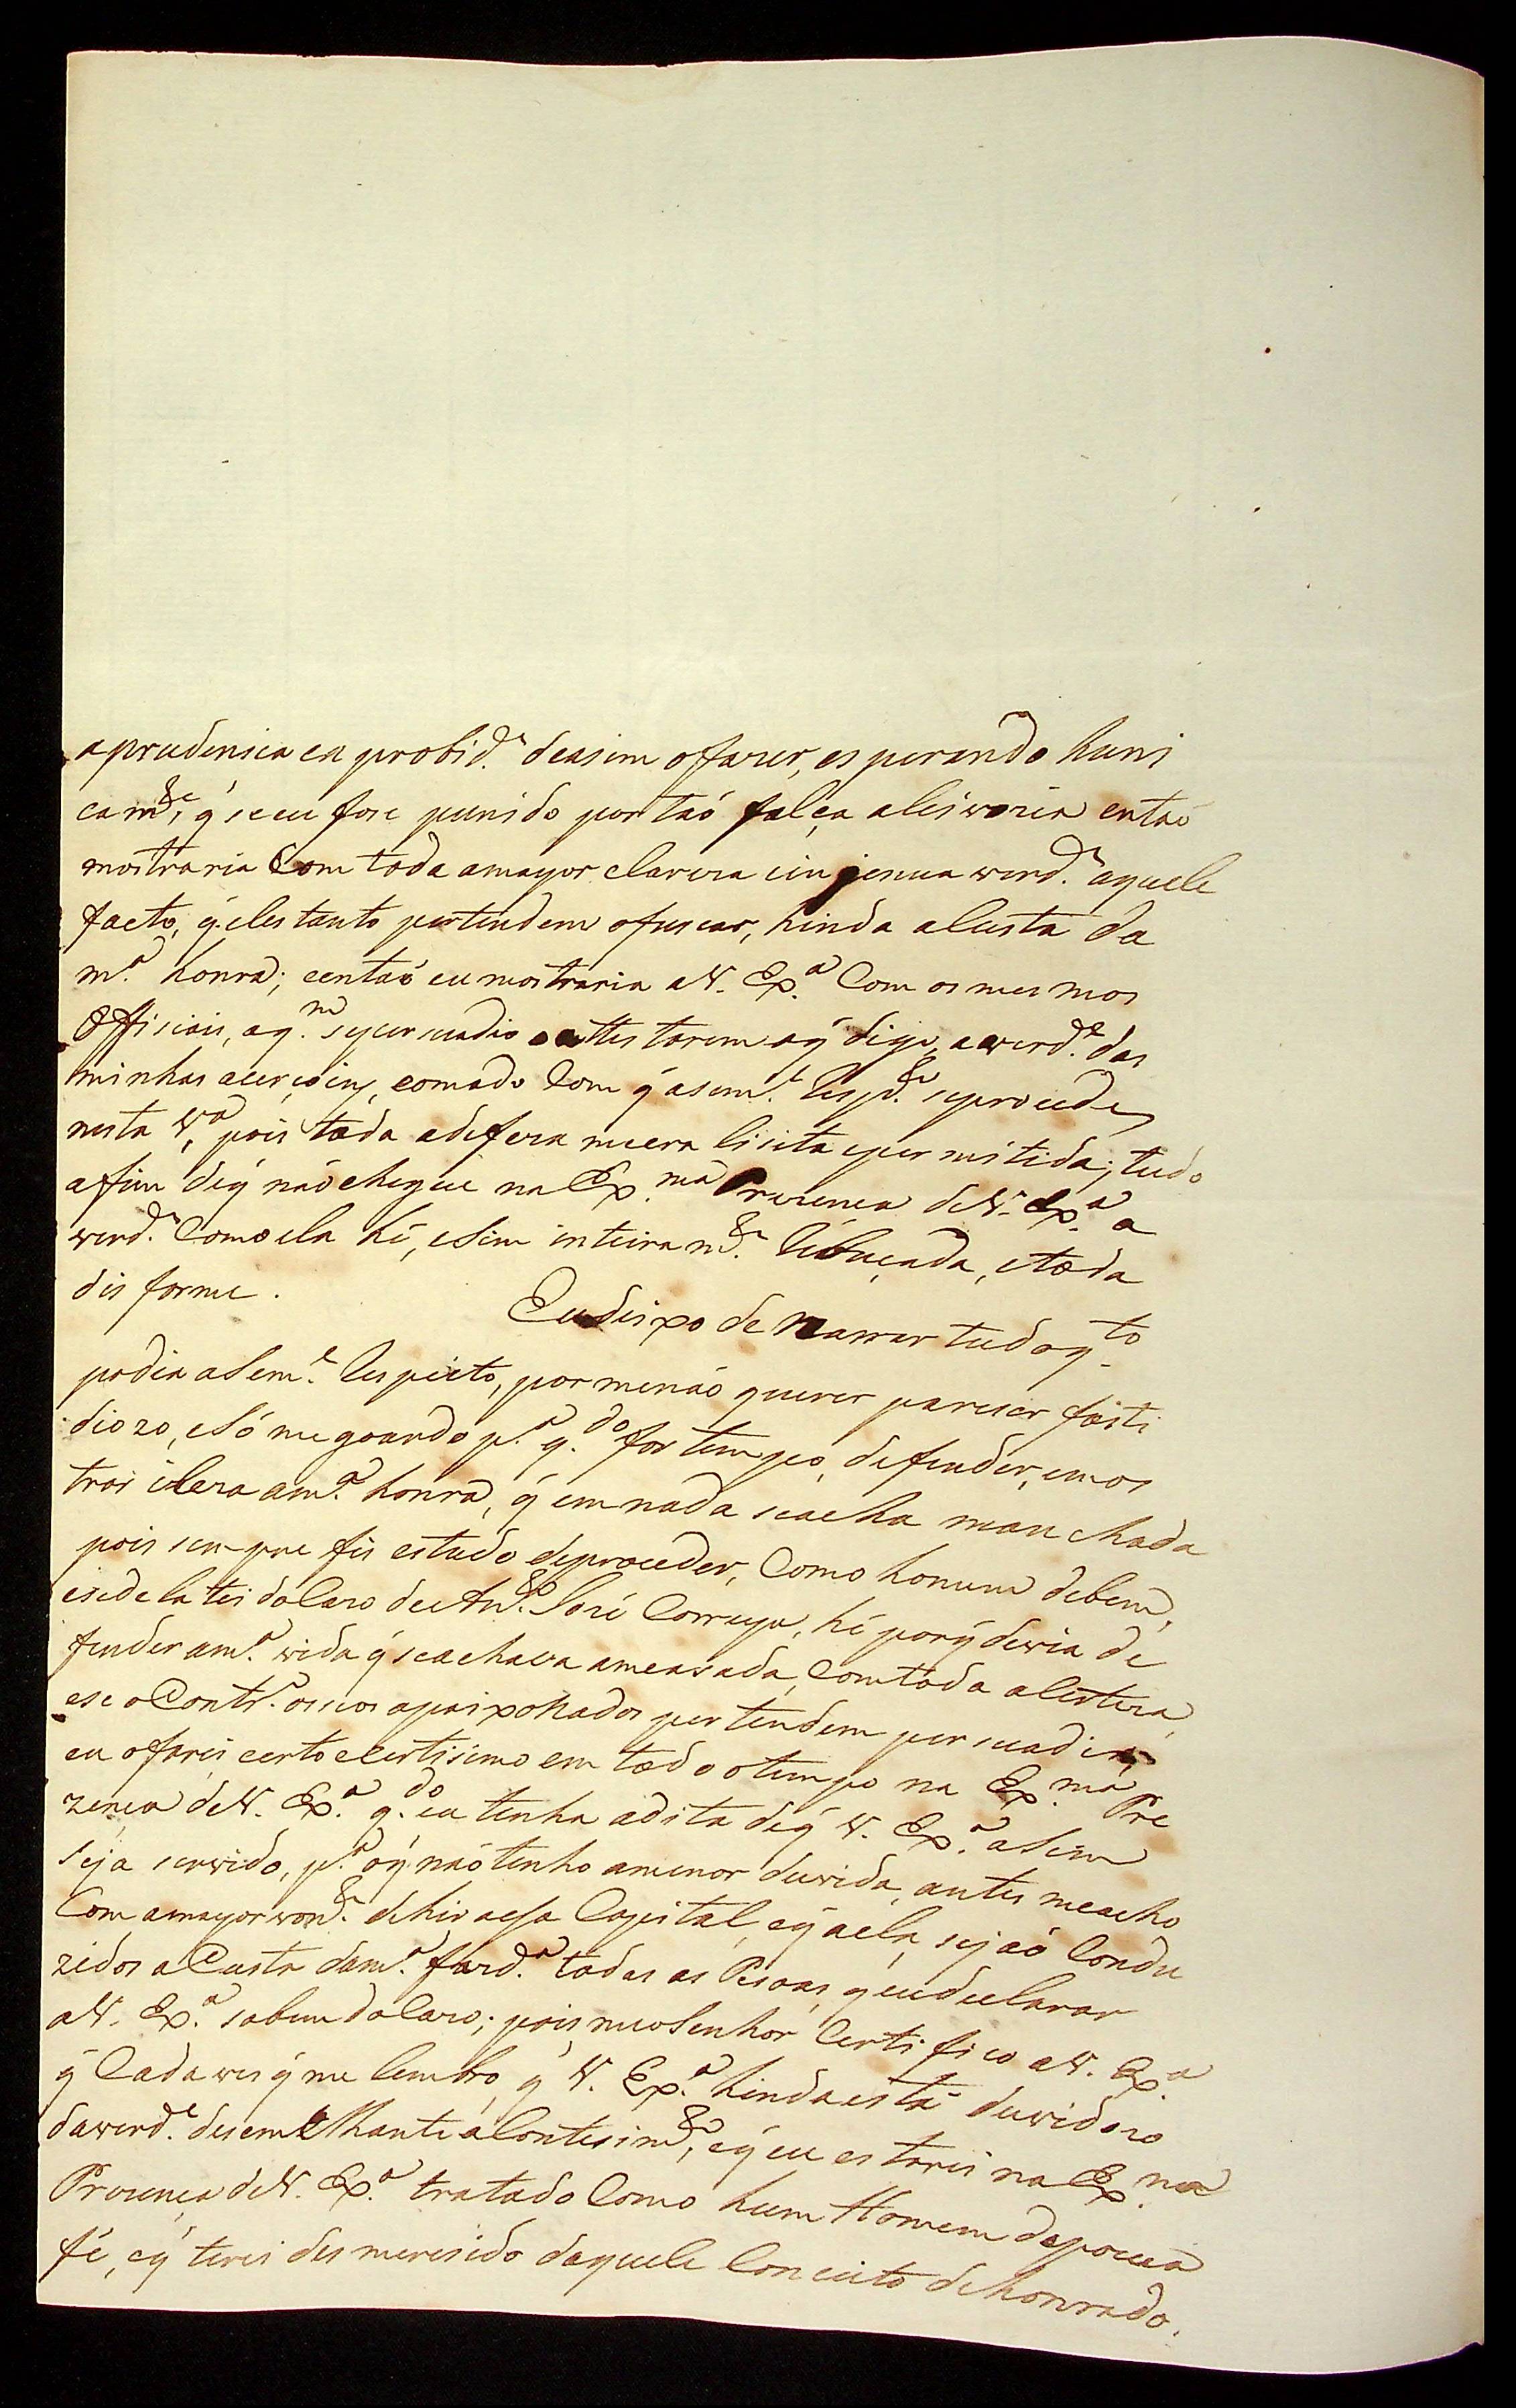 a prudensia ea probid.e deasim ofazer, esperando huni
cam.te, q̃ se eu fose punido por taõ falça aleiwozia entaõ
mostraria Com toda amayor clareza e injenua werd.e aquele
facto, q̃ eles tanto pertendem ofuscar, hinda alcusta da
m.a honra; eentaõ eu mostraria aW. Ex.a Com os mesmos
Offisiais, aq.m sepersuadio aattestarem oq̃ digo, a werd.e das
minhas acersoins, comado Com q̃ asem.e Resp.to seprocede
nesta W.a pois toda adefeza meera lisita epermitida; tudo
afim deq̃ naõ chegue na Ex.ma Prezenca deW. Ex.a a
werd.e Como ela hé, eSim inteiram.te Rebuçada, etoda
disforme.
Eudeixo de Narrar tudo q.to
podia aSem.e Respeito, por menaõ querer pareser fasti
diozo, eSó me goardo p.a q.do for tempo, defender, emos
trar ileza am.a honra, q̃ em nada seacha manchada
pois sempre fis estudo deproceder, Como homem debem,
esede la tis do Cazo de An.to José Correya, hé porq̃ dewia de
fender am.a wida q̃ seachava ameasada, Comtoda alerteza,
ese oContr.o os seos apaixonados pertendem persuadir,
eu ofarei certo ecertisimo em todo otempo na Ex.ma Pre
zenca deW. Ex.a q.do eu tenha adita deq̃ W. Ex.a aSim
seja serwido, p.a oq̃ naõ tenho amenor duwida, antes meacho
Com amayor won.te dehir aessa Capital, eq̃ aela, sejaõ Condu
zidos aCusta dam.a fazd.a todas as Pesoas, q̃ eu declarar
aW. Ex.a sabem do Cazo; pois meo Senhor Certifico aW. Ex.a
q̃ Cada wes q̃ me lembro, q̃ W. Ex.a hinda está duwidozo
dawerd.e desemelhante aContesim.to, eq̃ eu estarei na Ex.ma
Prezença deW. Ex.a tratado Como hum Homem depouca
fé, eq̃ terei desmeresido daquele Conceito dehonrado.